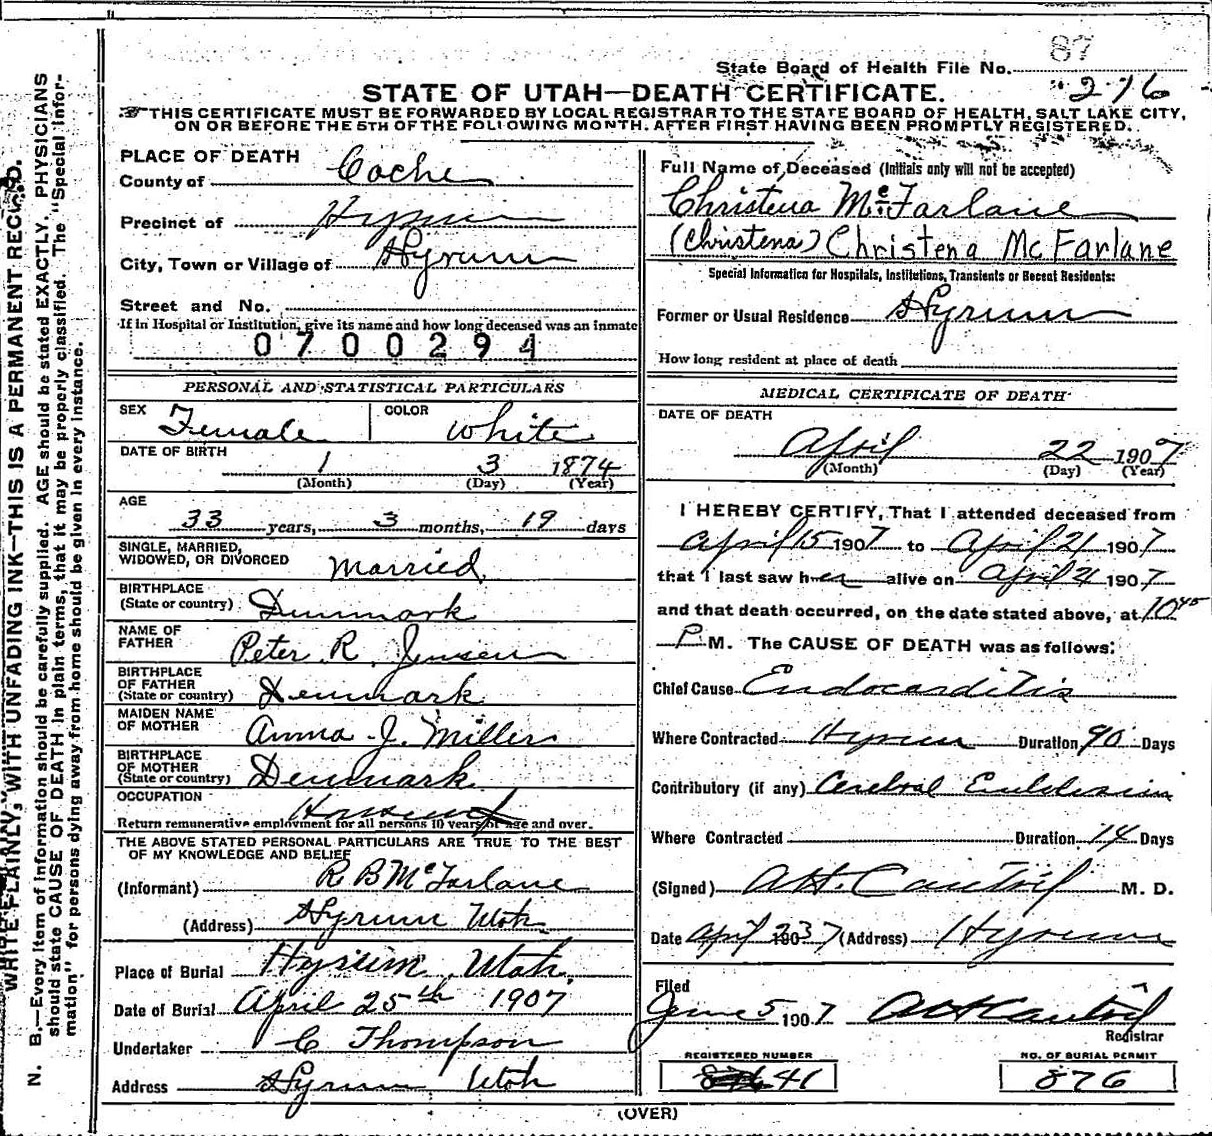 87
State Board of Health File No. 276
STATE OF UTAH—DEATH CERTIFICATE.
THIS CERTIFICATE MUST BE FORWARDED BY LOCAL REGISTRAR TO THE STATE BOARD OF HEALTH, SALT LAKE CITY,
ON OR BEFORE THE 5TH OF THE FOLLOWING MONTH, AFTER FIRST HAVING BEEN PROMPTLY REGISTERED.
PLACE OF DEATH
County of Cache
Precinct of Hyrum
City, Town or Village of Hyrum
Street and No.
If in Hospital or Institution, give its name and how long deceased was an inmate
0700294
Full Name of Deceased (Initials only will not be accepted)
Christena McFarlane
(Christena) Christena McFarlane
Special Information for Hospitals, Institutions, Transients or Recent Residents:
Former or Usual Residence Hyrum
How long resident at place of death
PERSONAL AND STATISTICAL PARTICULARS
SEX Female COLOR White
DATE OF BIRTH
1 3 1874
(Month) (Day) (Year)
AGE
33 years, 3 months, 19 days
SINGLE, MARRIED,
WIDOWED, OR DIVORCED Married
BIRTHPLACE
(State or country) Denmark
NAME OF
FATHER Peter R. Jensen
BIRTHPLACE
OF FATHER
(State or country) Denmark
MAIDEN NAME
OF MOTHER Anna J. Miller
BIRTHPLACE
OF MOTHER
(State or country) Denmark
OCCUPATION
Return remunerative employment for all persons 10 years of age and over.
THE ABOVE STATED PERSONAL PARTICULARS ARE TRUE TO THE BEST
OF MY KNOWLEDGE AND BELIEF
(Informant) R B McFarlane
(Address) Hyrum Utah
Place of Burial Hyrum, Utah
Date of Burial April 25th 1907
Undertaker C Thompson
Address Hyrum Utah
MEDICAL CERTIFICATE OF DEATH
DATE OF DEATH
April 22 1907
(Month) (Day) (Year)
I HEREBY CERTIFY, That I attended deceased from
April 15 1907 to April 21 1907
that I last saw her alive on April 21 1907
and that death occurred, on the date stated above, at 10 45
P M. The CAUSE OF DEATH was as follows:
Chief Cause Endocarditis
Where Contracted Hyrum Duration 90 Days
Contributory (if any) Cerebral Embolism
Where Contracted Duration 14 Days
(Signed) M. D.
Date April 23 1907 (Address) Hyrum
Filed
June 5 1907
Registrar
REGISTERED NUMBER
41
NO. OF BURIAL PERMIT
876
(OVER)
WRITE PLAINLY, WITH UNFADING INK—THIS IS A PERMANENT RECORD.
N. B.—Every item of information should be carefully supplied. AGE should be stated EXACTLY. PHYSICIANS
should state CAUSE OF DEATH in plain terms, that it may be properly classified. The "Special Infor-
mation" for persons dying away from home should be given in every instance.